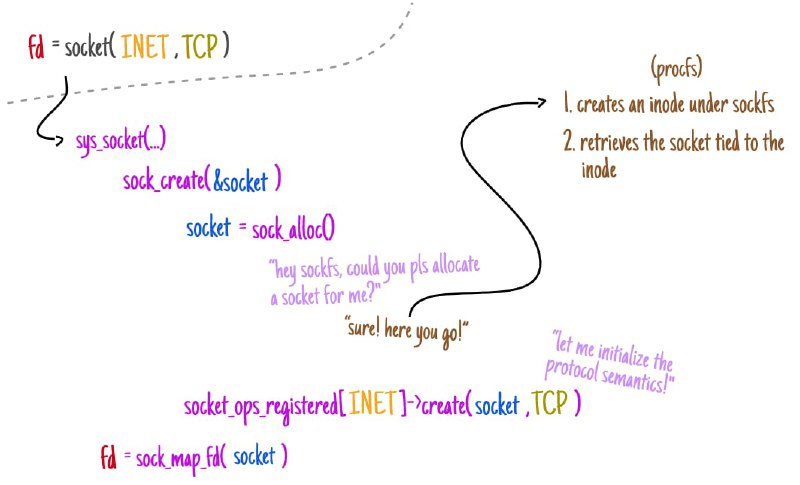 fd = socket( INET , TCP )
(procfs)
1. creates an inode under sockfs
2. retrieves the socket tied to the
inode
sys_socket(...)
sock_create( &socket )
socket = sock_alloc()
"hey sockfs, could you pls allocate
a socket for me?"
"sure! here you go!"
"let me initialize the
protocol semantics!"
socket_ops_registered[ INET ]->create( socket , TCP )
fd = sock_map_fd( socket )